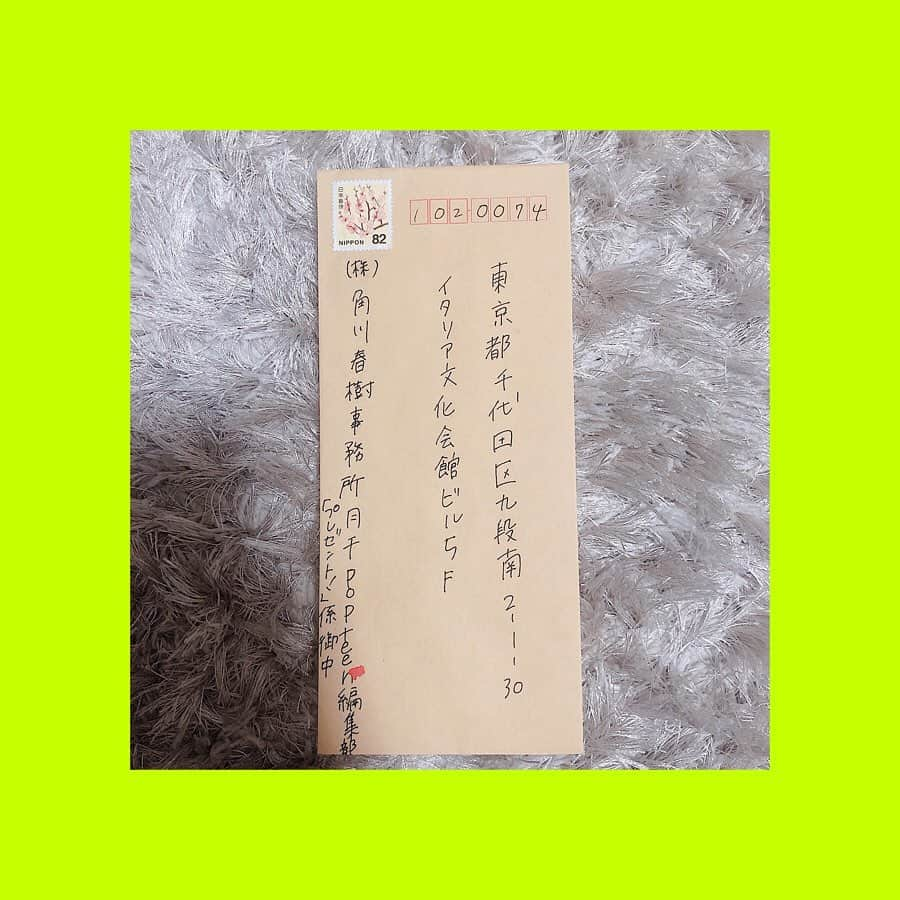 日本郵便
NIPPON 82
1020074
東京都千代田区九段南2-1-30
イタリア文化会館ビル5F
(株)角川春樹事務所月刊popteen編集部
「プレゼント」係御中